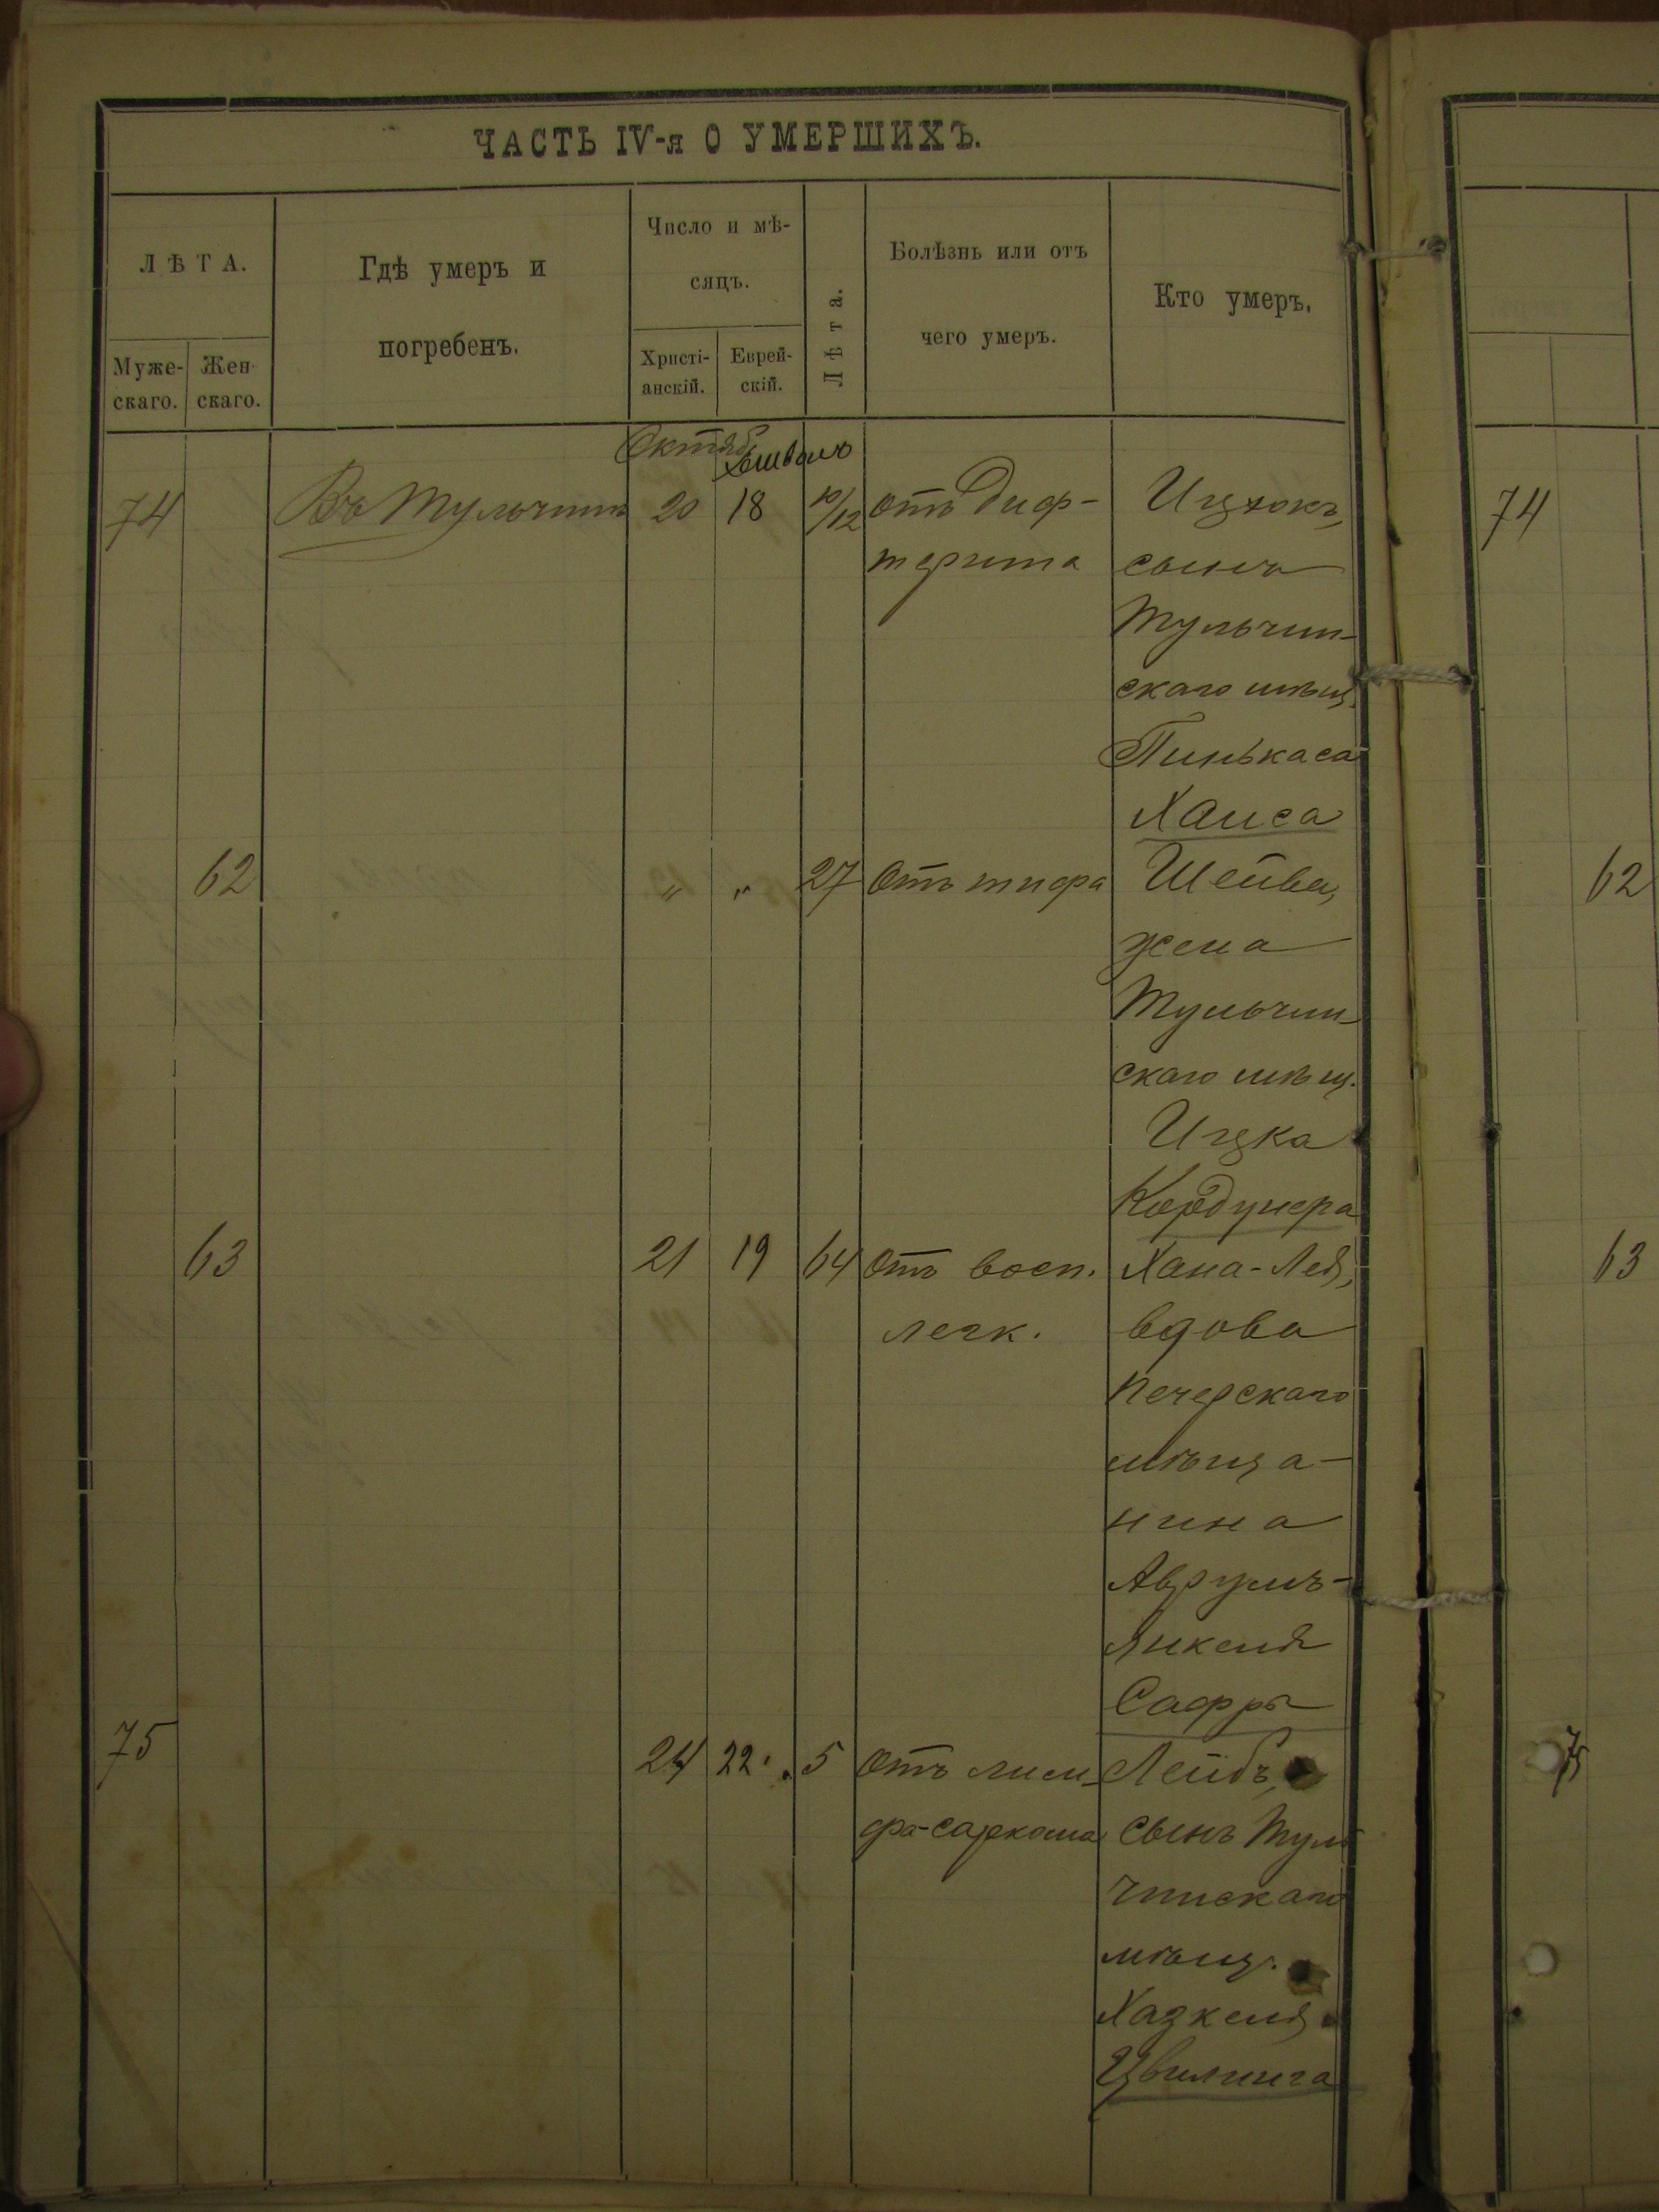 ЧАСТЬ IV-я О УМЕРШИХЪ.
ЛѢТА.
Муже-
скаго.
Жен-
скаго.
Гдѣ умеръ и
погребенъ.
Число и мѣ-
сяцъ.
Христі-
анскій.
Еврей-
скій.
Лѣта.
Болѣзнь или отъ
чего умеръ.
Кто умеръ.
Октяб. Хешванъ
74 Въ Тульчинѣ 20 18 10/12 отъ диф- Ицхокъ, 74
терита сынъ
Тульчин-
скаго мѣщ.
Пинькаса
Хаиса
62 „ „ 27 Отъ тифа Шейва, 62
жена
Тульчин-
скаго мѣщ.
Ицка
Кордунера
63 21 19 64 Отъ восп. Хана-Лея, 63
легк. вдова
Печерскаго
мѣща-
нина
Аврумъ-
Янкеля
Сафры
75 24 22 5 Отъ лим- Лейбъ, 75
фа-саркома сынъ Туль
чинскаго
мѣщ.
Хазкеля
Цвилинга